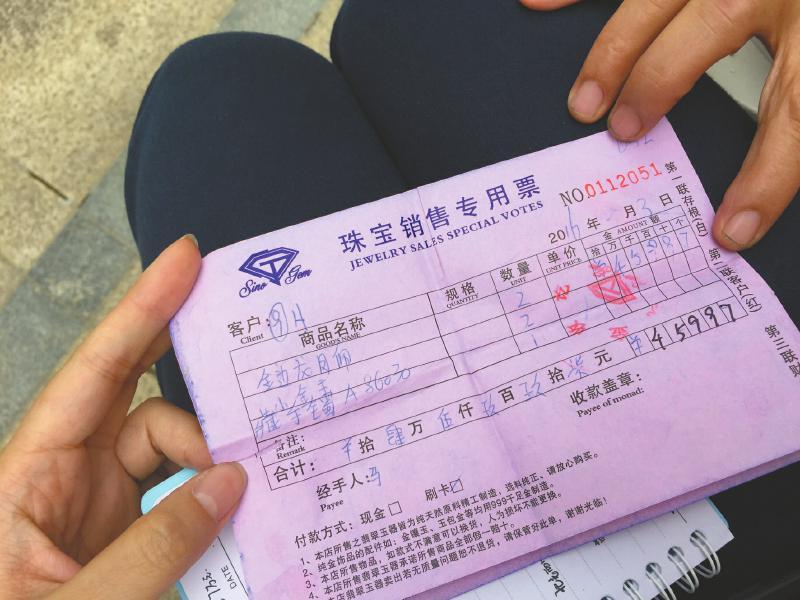 珠宝销售专用票
JEWELRY SALES SPECIAL VOTES
NO.0112051
Sino Gem
2016年 月3日
客户:
Client
商品名称
GOOD'S NAME
规格
QUANTITY
数量
UNIT
单价
UNIT PRICE
金 AMOUNT 额
拾万千百十个
2
45987
2
1
A 3600
备注:
Remark
合计: 拾肆万伍仟玖百玖拾柒元 ¥45997
经手人:冯
Payee
收款盖章:
Payee of monad:
付款方式: 现金☐ 刷卡☑
1、本店所售之翡翠玉器皆为纯天然原料精工制造,选料纯正、请放心购买。
2、纯金饰品的配件如:金镶玉、玉包金等均用999千足金制造。
3、本店所售物品,如款式不满意可以换货,人为损坏不能更换。
4、本店所售翡翠玉器承诺所售商品全部假一赔十。
本店翡翠玉器卖出若无质量问题恕不退货,请保管好此单,谢谢光临!
第一联存根(白)
第二联客户(红)
第三联财
DATE